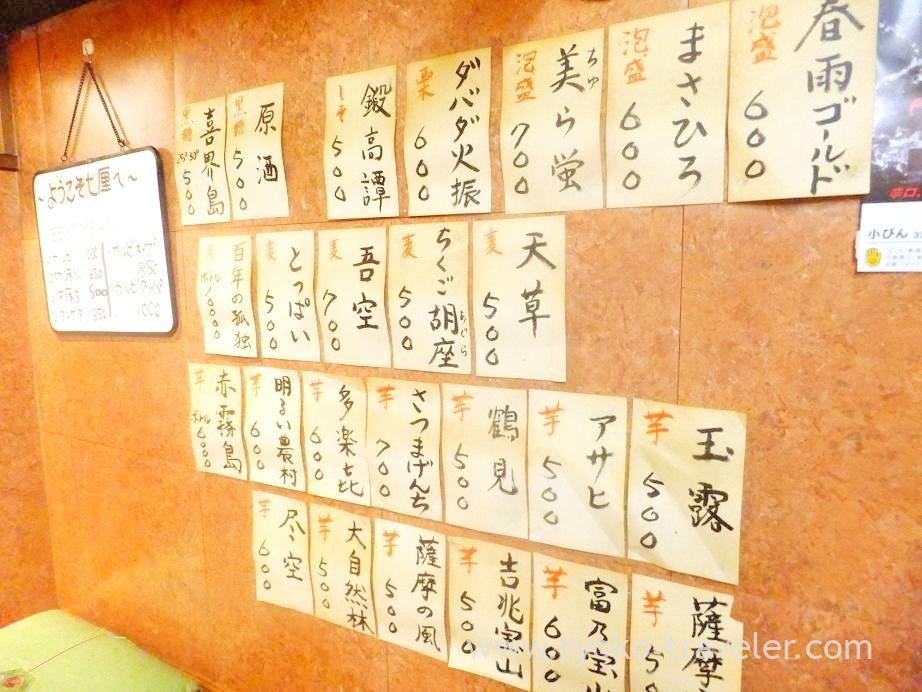 春雨ゴールド
泡盛
600
まさひろ
泡盛
600
美ら蛍
ちゅ
泡盛
700
ダバダ火振
栗
600
鍛高譚
しそ
500
原酒
黒糖
500
喜界島
黒糖
25° 30°
500
天草
麦
500
ちくご胡座
あぐら
麦
500
吾空
麦
700
とっぱい
麦
500
百年の孤独
麦
ボトル
玉露
芋
500
アサヒ
芋
500
鶴見
芋
500
さつまげんち
芋
700
多楽比
芋
600
明るい農村
芋
600
赤霧島
芋
ボトル
6000
薩摩
芋
富乃宝山
芋
600
吉兆宝山
芋
500
薩摩の風
芋
500
大自然林
芋
500
尽空
芋
600
〜ようこそ七厘へ〜
850
500
1000
辛口
小びん
www.ryoko-traveler.com